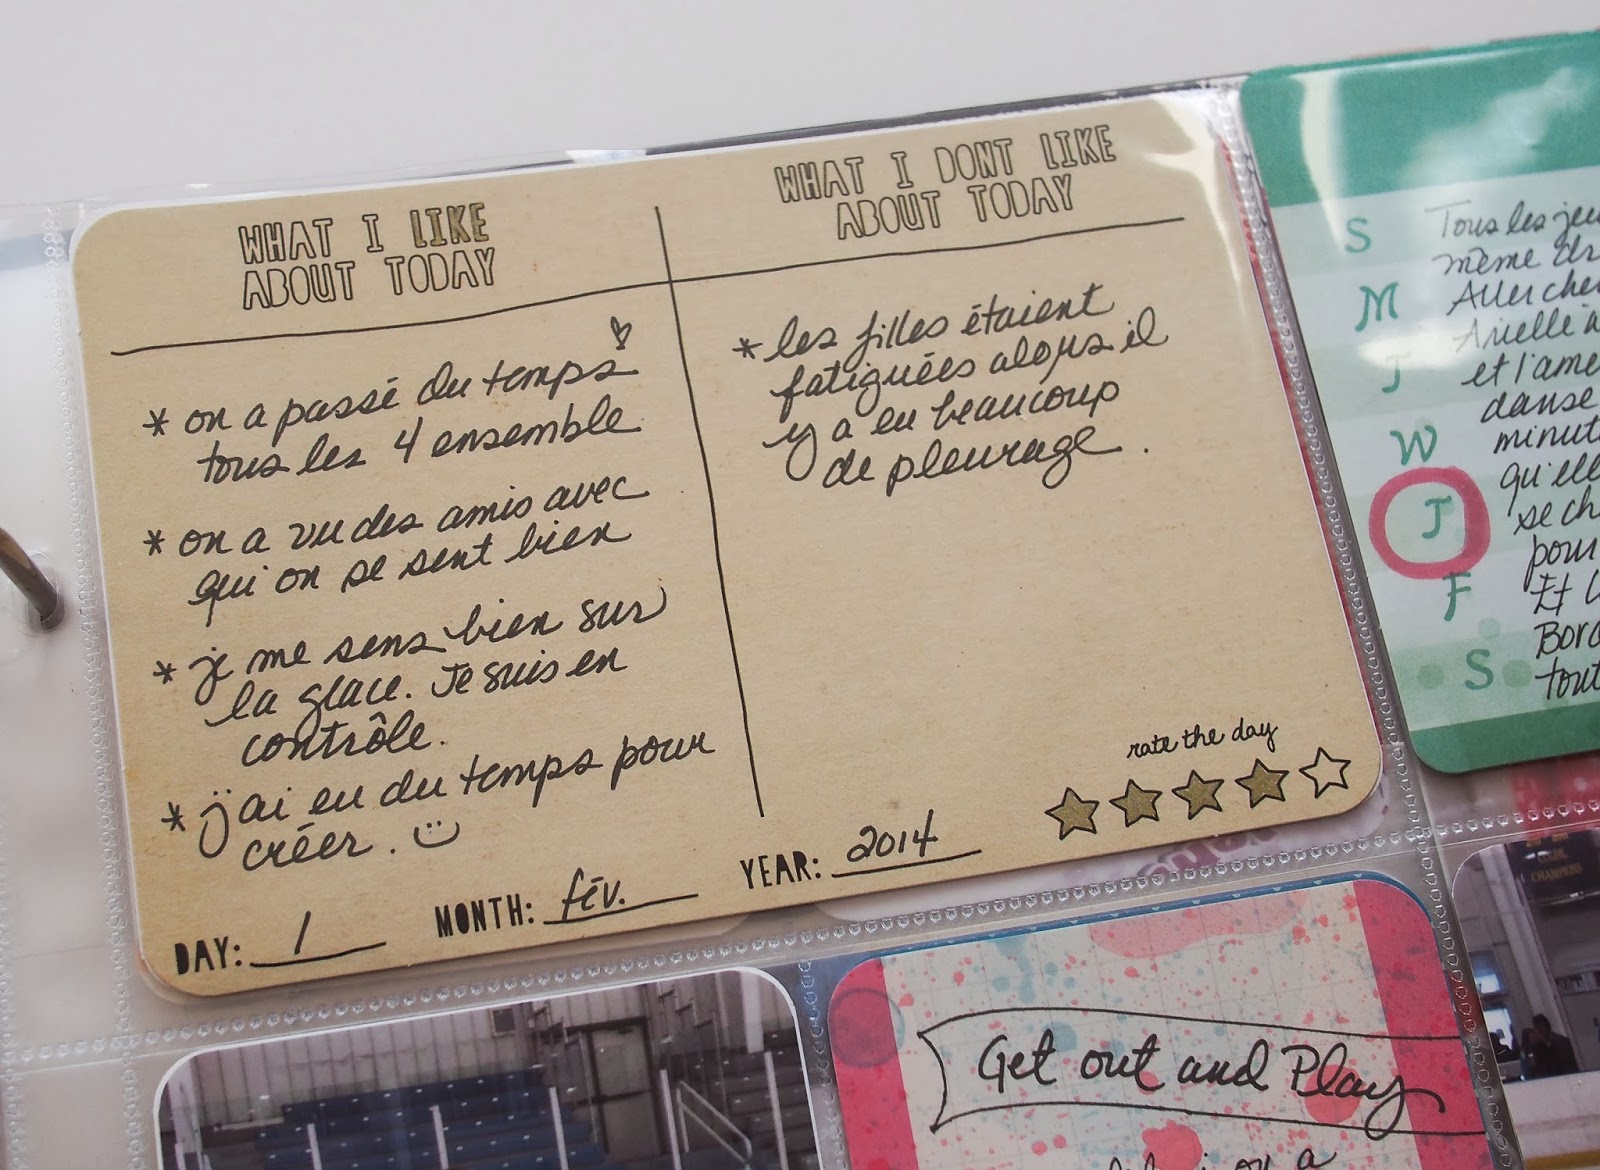 WHAT I LIKE
ABOUT TODAY
* on a passé du temps
tous les 4 ensemble
* on a vu des amis avec
qui on se sent bien
* je me sens bien sur
la glace. Je suis en
contrôle.
* j'ai eu du temps pour
créer.
WHAT I DONT LIKE
ABOUT TODAY
* les filles étaient
fatiguées alors il
y a eu beaucoup
de pleurage.
rate the day
DAY: 1 MONTH: fév. YEAR: 2014
S
M
T
W
T
F
S
Tous les jeu
même
Aller cher
Arielle à
et l'ame
danse
minut
qu'elle
se ch
pour
Et
Bord
tout
CHAMPIONS
Get out and Play